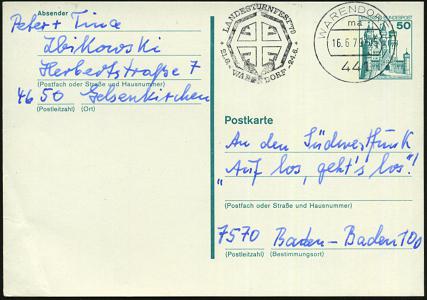 Absender
Peter + Tina
Zbikowski
Herbertstraße 7
(Postfach oder Straße und Hausnummer)
4650 Gelsenkirchen
(Postleitzahl) (Ort)
LANDESTURNFEST 79
21.6.-WARENDORF-24.6.
WARENDORF
ma
16.6.79
44
DEUTSCHE BUNDESPOST
50
Postkarte
An den Südwestfunk
"Auf los, geht's los!"
(Postfach oder Straße und Hausnummer)
7570 Baden-Baden 100
(Postleitzahl) (Bestimmungsort)